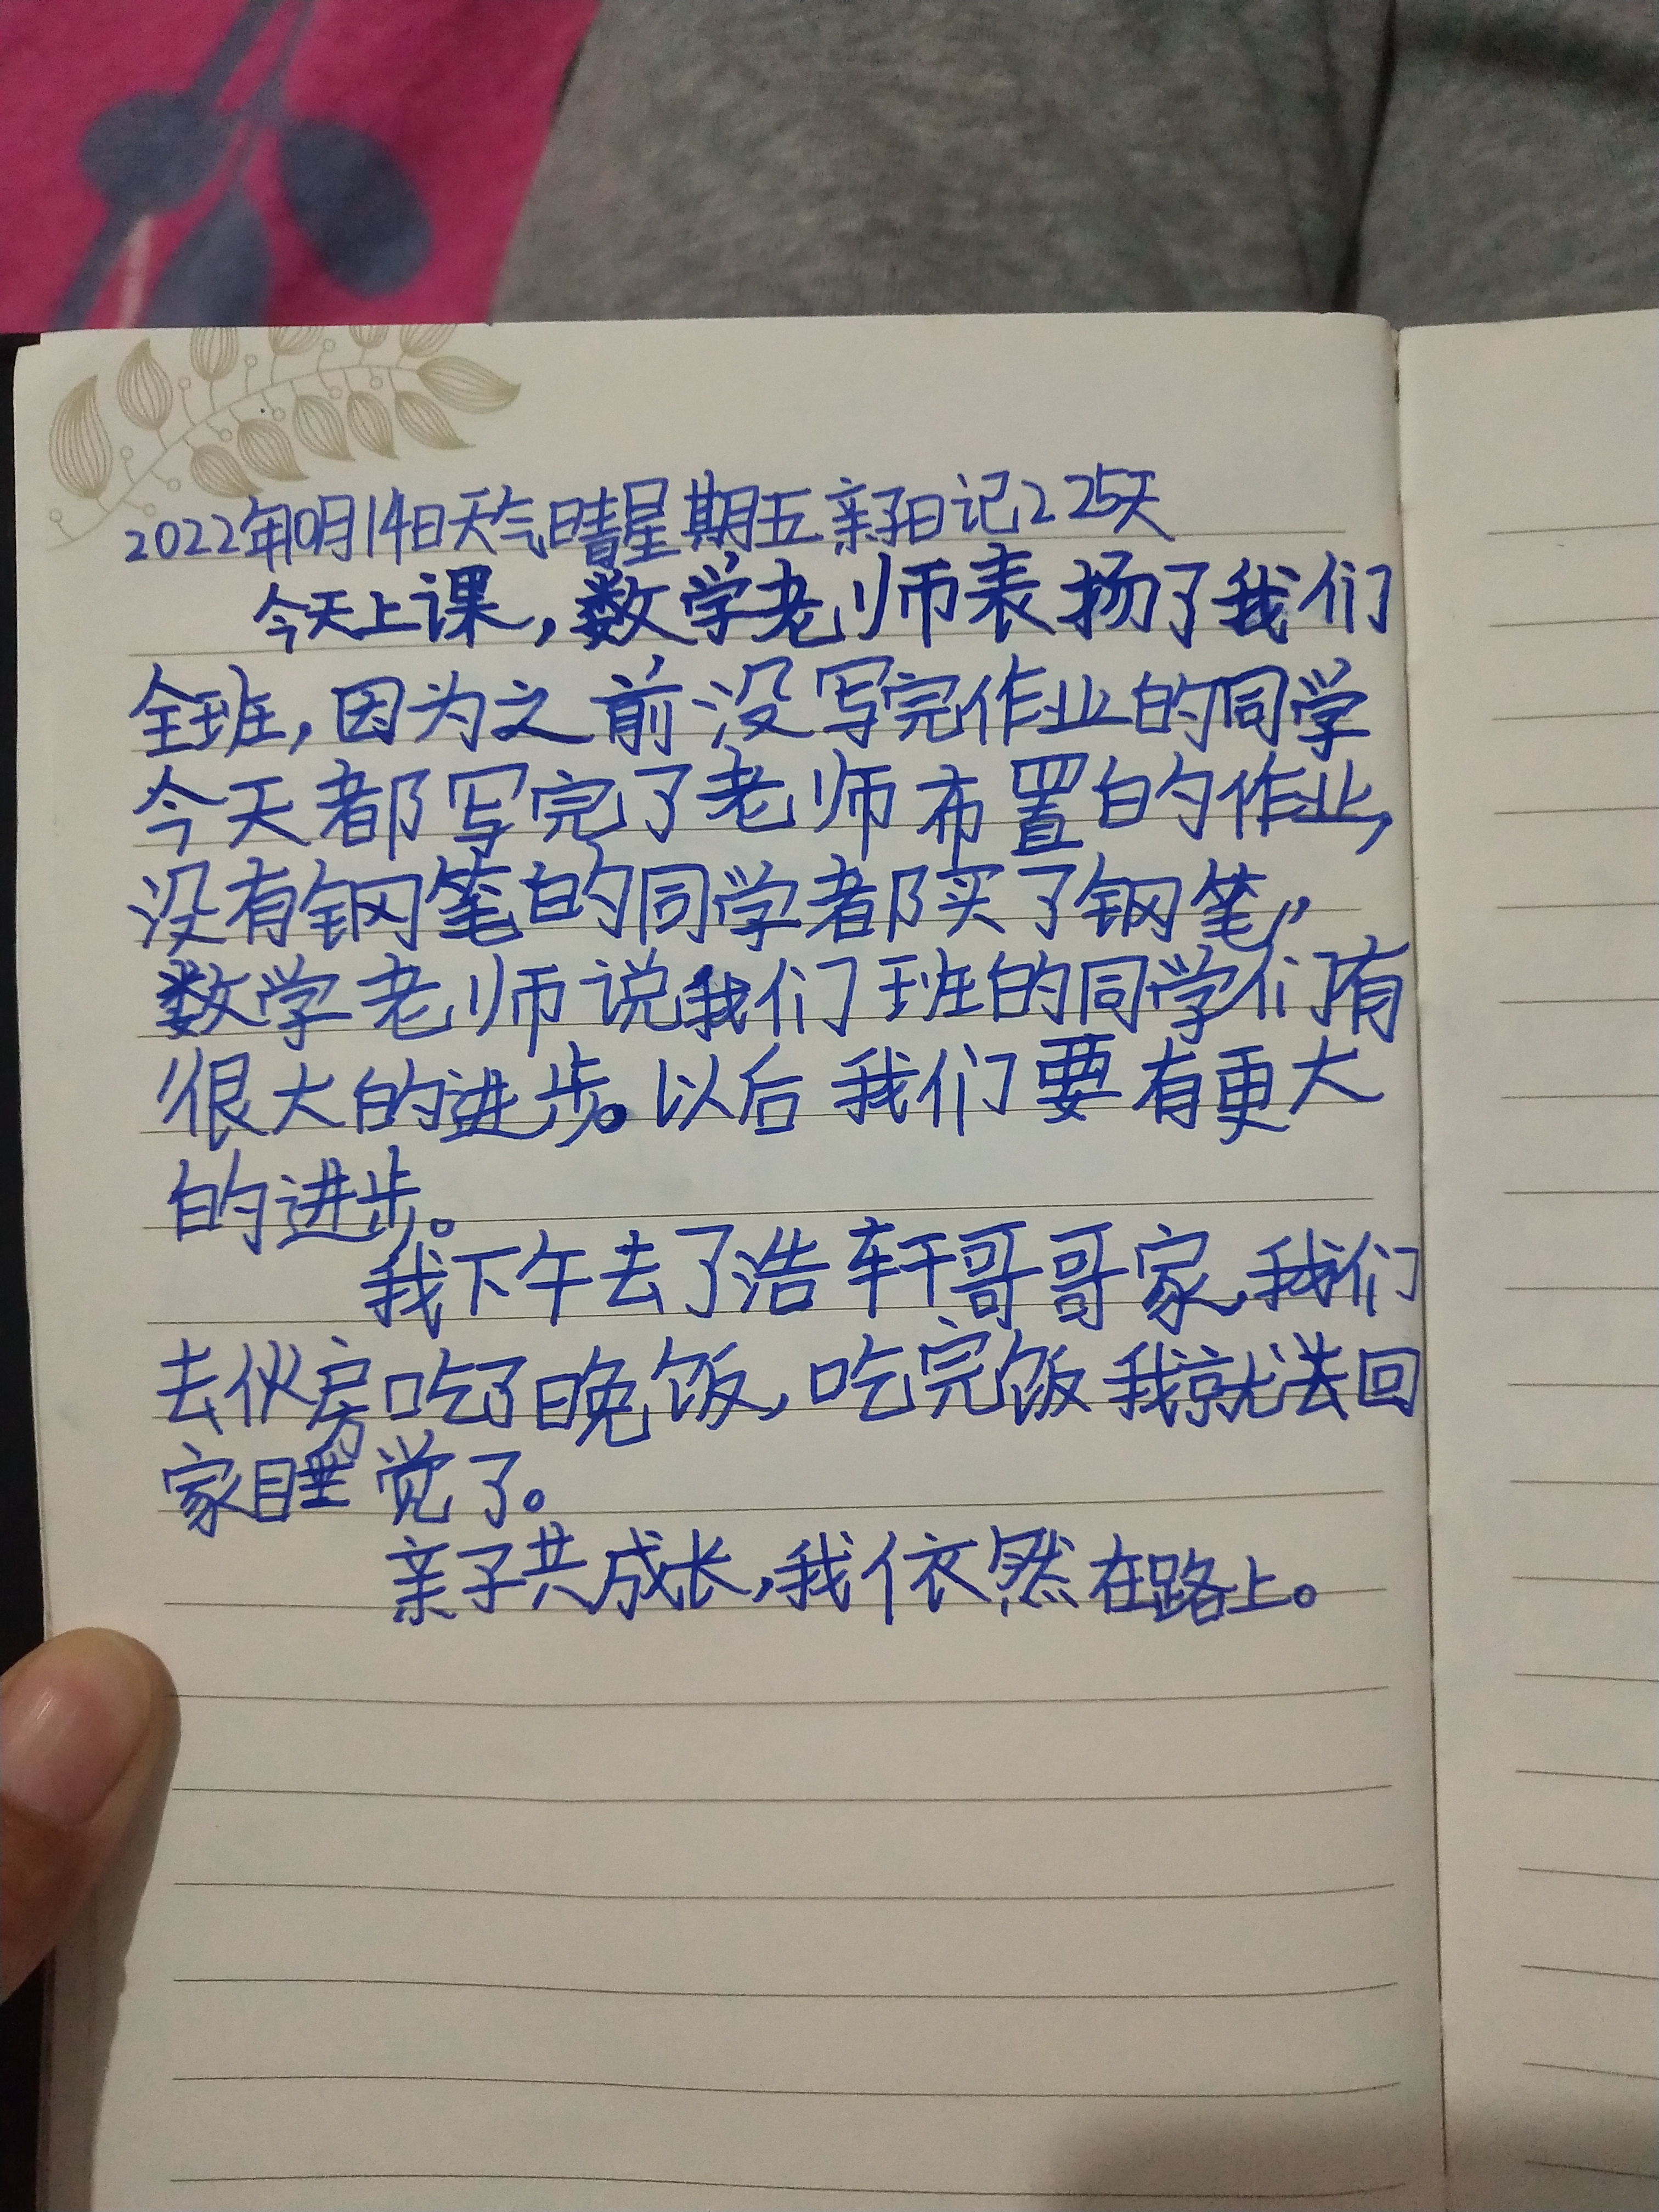 2022年10月14日天气晴星期五亲子日记225天
今天上课,数学老师表扬了我们
全班,因为之前没写完作业的同学
今天都写完了老师布置的作业,
没有钢笔的同学都买了钢笔,
数学老师说我们班的同学们有
很大的进步。以后我们要有更大
的进步。
我下午去了浩轩哥哥家,我们
去伙房吃了晚饭,吃完饭我就去回
家睡觉了。
亲子共成长,我依然在路上。